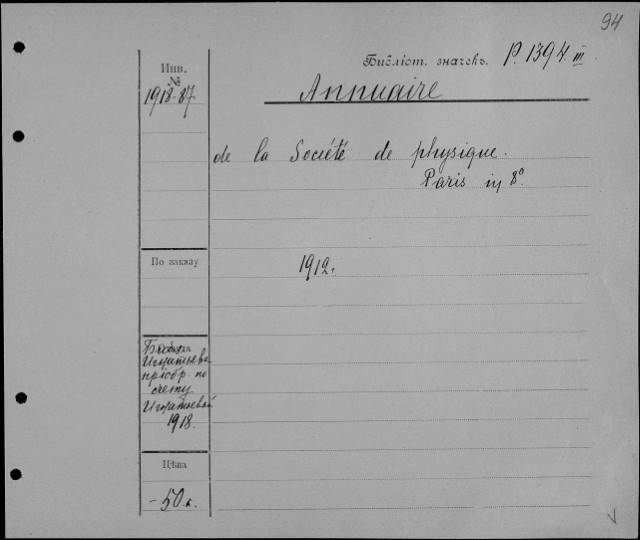 94
Библіот. значекъ. P. 1394 III
Инв.
№
1918-87
Annuaire
de la Société de physique.
Paris in 8°.
По заказу
1912.
Игнатьева
пріобр. по
счету
Игнатьевой
1918.
Цѣна
-50 к.